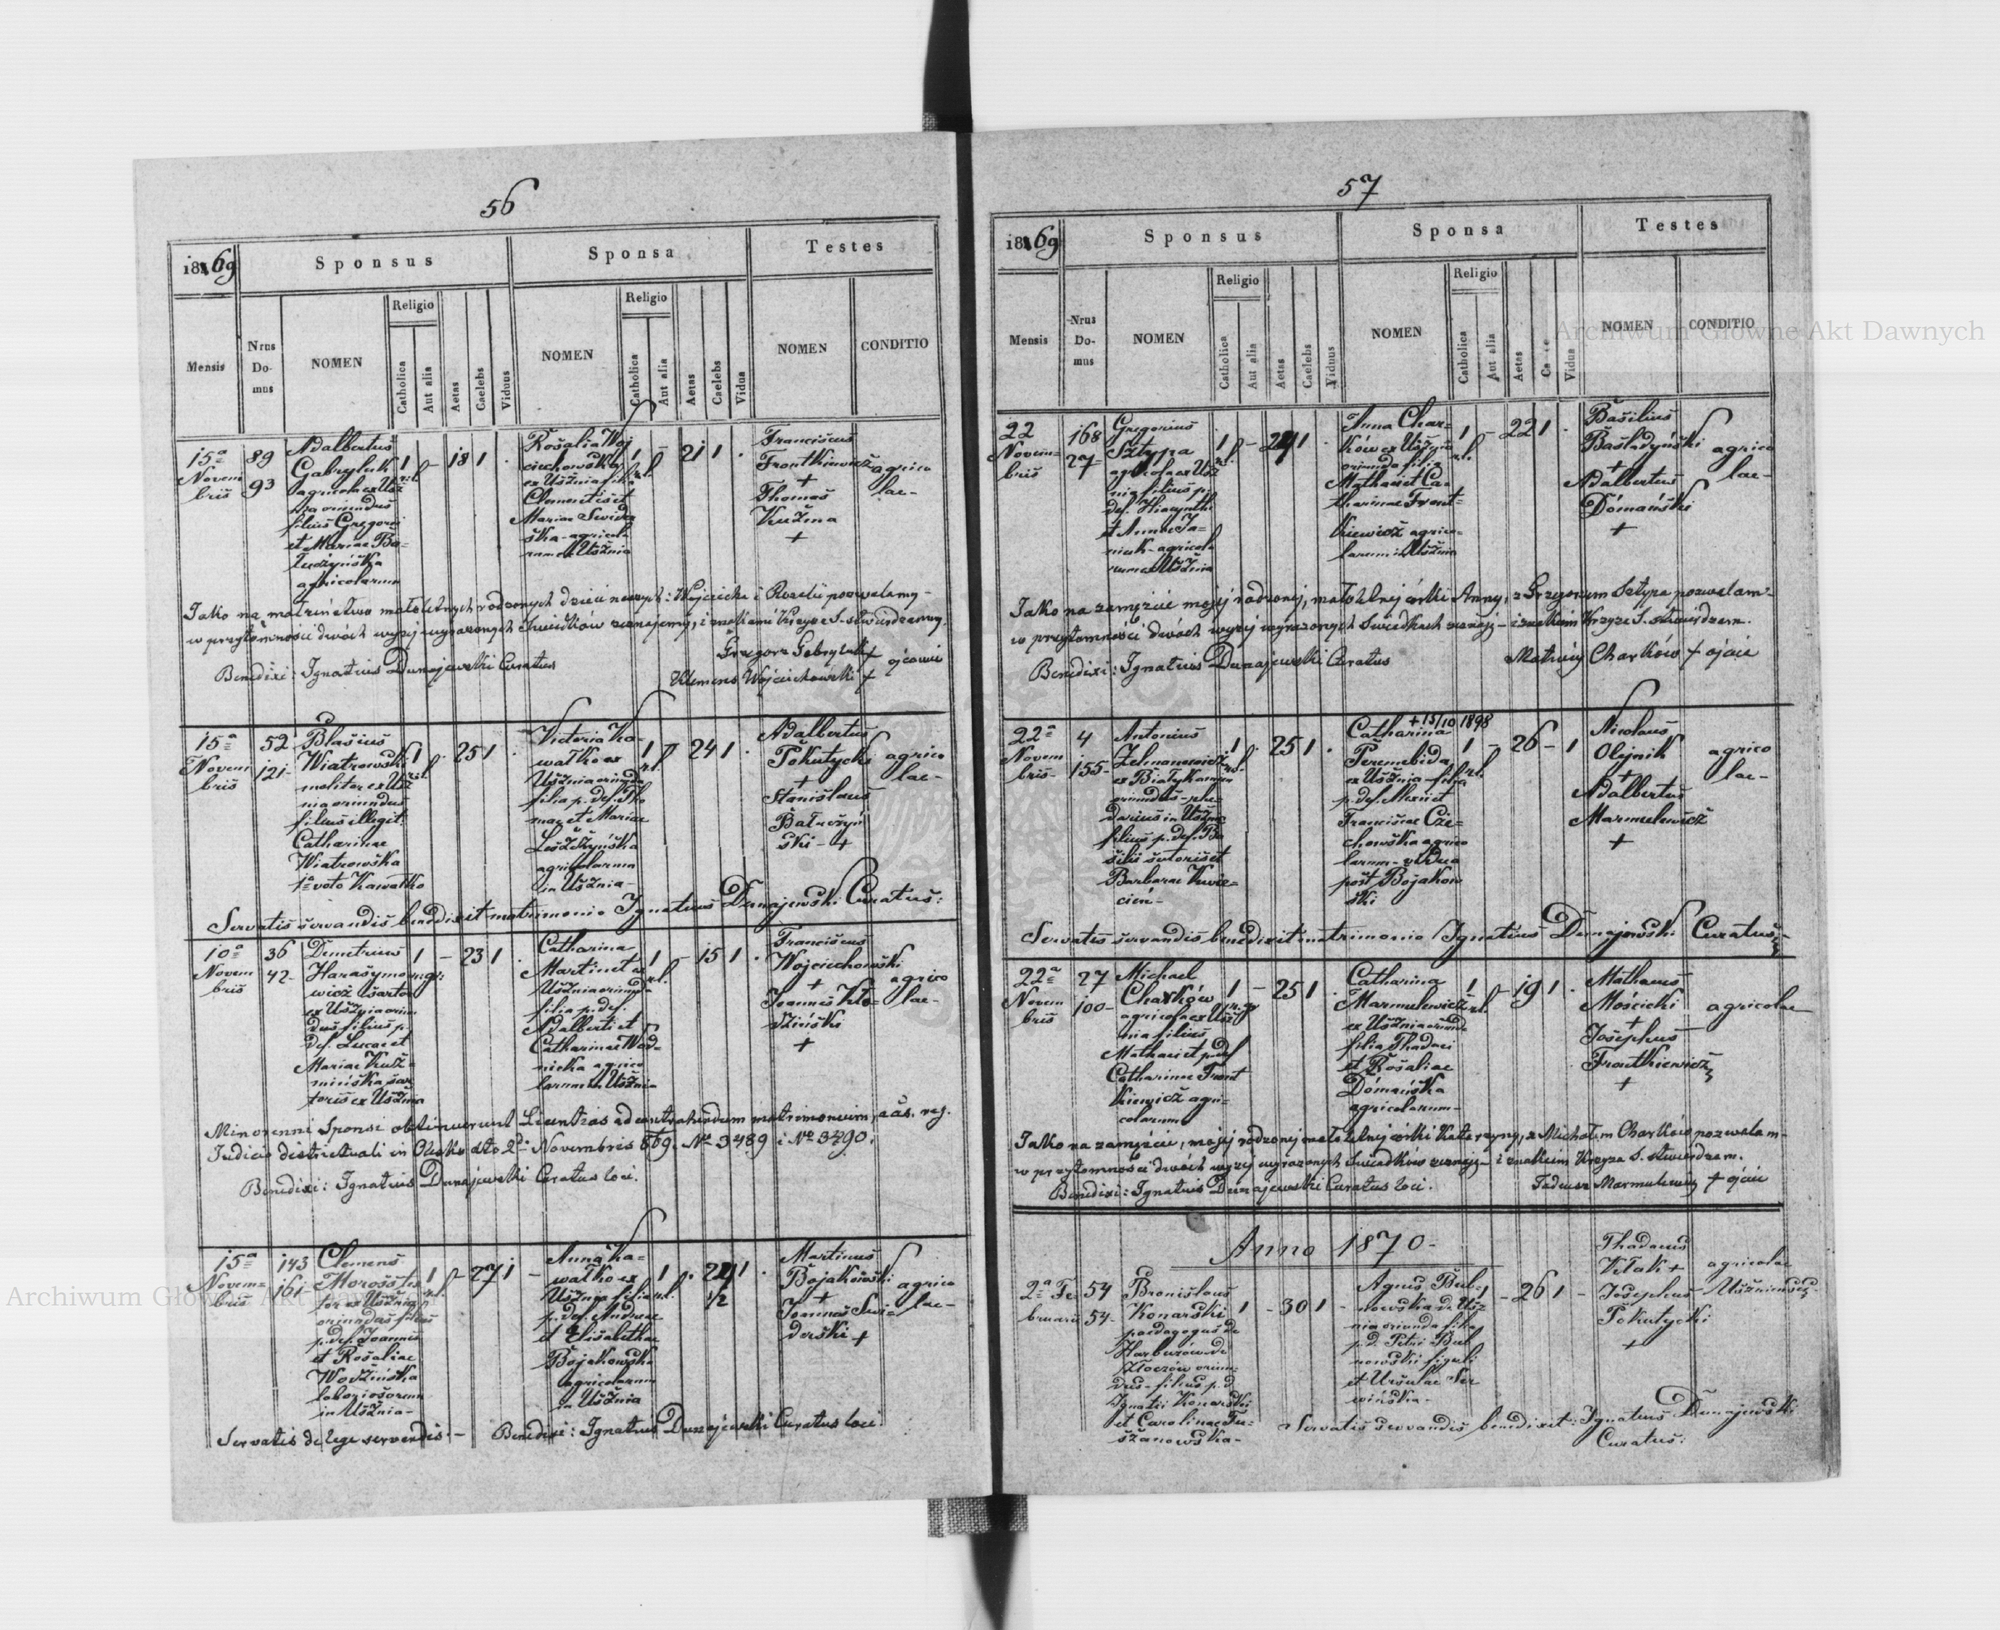 56
1869
Sponsus
Sponsa
Testes
Mensis
Nrus Domus
NOMEN
Religio
Catholica
Aut alia
Aetas
Caelebs
Viduus
NOMEN
Religio
Catholica
Aut alia
Aetas
Caelebs
Vidua
NOMEN
CONDITIO
15a Novembris
89
93
Adalbertus
Gabryluk
agricola ex Usz
nia oriundus
filius Gregorii
et Mariae Ba=
agricolarum
1 r.l.
18 1
Rosalia Woj
ciechowska
ex Usznia filia
Clementis et
Mariae Swider
ska - agricola
rum ex Usznia
1 r.l.
21 1
Franciscus
Frontkiewicz
+
Thomas
Kuzma
+
agrico
lae -
w przytomności dwóch wyżej wyrażonych Świadków zeznajemy, i znakami Krzyża S. stwierdzamy.
Grzegorz Gabryluk + ojcowie
Benedixi: Ignatius Dunajewski Curatus
Klemens Wojciechowski +
15a Novembris
52
121
Blasius
Wiatrowski
molitor ex Usz
nia oriundus
filius illegit.
Catharinae
Wiatrowska
1o voto Kawałko
1 r.l.
25 1
Victoria Ka=
wałko ex
Usznia oriunda
filia p. def. Tho
mae et Mariae
agricolarum
in Usznia -
1 r.l.
24 1
Adalbertus
Pokutycki
+
Stanislaus
Bałuczyń
ski - +
agrico
lae -
Servatis servandis benedixit matrimonio Ignatius Dunajewski Curatus:
10a Novembris
36
42
Demetrius
Harasymo
wicz sarto
ex Usznia oriun
dus filius p.
def. Lucae et
Mariae Kuź=
mińska sar
toris ex Usznia
1 r.gr.
23 1
Catharina
Martinetz
Usznia oriunda
filia p. def.
Adalberti et
Catharinae Wod=
nicka agrico
larum in Usznia
1 r.l.
15 1
Franciscus
Wojciechowski
+
Joannes Kło=
dziński
+
agrico
lae -
Minorenni Sponsi obtinuerunt Licentias ad contrahendum matrimonium, a às. reg.
Judicio districtuali in Olesko dto 2a Novembris 869. No 3489 i No 3490.
Benedixi: Ignatius Dunajewski Curatus loci.
15a Novembris
143
161
Clemens
Moroz
oriundus filius
p. def. Joannis
et Rosaliae
Wodzińska
laboriosorum
in Usznia -
1 r.l.
27 1
Anna Ka=
wałko ex
Usznia filia
p. def. Andreae
et Elisabethae
Bojakowska
agricolarum
in Usznia
1 r.l.
1/2
Martinus
Bojakowski
+
Joannes Swi=
derski +
agrico
lae -
Servatis de lege servandis. -
Benedixi: Ignatius Dunajewski Curatus loci
57
1869
Sponsus
Sponsa
Testes
Mensis
Nrus Domus
NOMEN
Religio
Catholica
Aut alia
Aetas
Caelebs
Viduus
NOMEN
Religio
Catholica
Aut alia
Aetas
Vidua
NOMEN
CONDITIO
22 Novembris
168
27
Gregorius
Sztypa
agricola ex Usz
nia filius p.
def. Hiacynthi
et Annae Ja=
niuk - agricola
rum ex Usznia
1 r.l.
Anna Char=
ków ex Usznia
oriunda filia
Mathaei et Ca=
tharinae Front=
kiewicz agrico=
larum in Usznia
1 r.l.
22 1
Basilius
Basladyński
+
Adalbertus
Domański
+
agrico
lae -
Jako na zamęźcie mojej rodzonej, małoletnej córki Anny, z Grzegorzem Sztypa pozwalam -
w przytomności dwóch wyżej wyrażonych Świadkach zeznaję - i znakiem Krzyża S. stwierdzam.
Benedixi: Ignatius Dunajewski Curatus
Mathiej Charków + ojciec
22a Novembris
4
155
Antonius
ex Białykamen
oriundus - phe=
darius in Usznia
filius p. def. Ba
silii sutoris et
Barbarae Kwie=
cień -
1 r.l.
25 1
+ 13/10 1898
Catharina
Peremebida
ex Usznia - filia
p. def. Alexii et
Franciscae Cze=
chowska agrico
larum - vidua
post Bojakow
ski
1 r.l.
26 - 1
Nicolaus
Olejnik
+
Adalbertus
Marmulewicz
+
agrico
lae -
Servatis servandis benedixit matrimonio Ignatius Dunajewski Curatus
22a Novembris
27
100
Michael
Charków
agricola ex Usz
nia filius
Mathaei et p. def.
Catharinae Front
kiewicz agri=
colarum
1 r.gr.
25 1
Catharina
Marmulewicz
ex Usznia oriunda
filia Thadaei
et Rosaliae
Domańska
agricolarum -
1 r.l.
19 1
Mathaeus
Mościcki
+
Josephus
Frontkiewicz
+
agricolae
Jako na zamęźcie, mojej rodzonej małoletnej córki Katarzyny, z Michałem Charków pozwalam -
w przytomności dwóch wyżej wyrażonych Świadków zeznaję - i znakiem Krzyża S. stwierdzam.
Benedixi: Ignatius Dunajewski Curatus loci.
Tadeusz Marmulewicz + ojciec
Anno 1870 -
2a Februarii
54
54
Bronislaus
Konarski
paedagogus de
Harbuzów de
Złoczów oriun=
dus - filius p. d.
Ignatii Konarski
et Carolinae
1
30 1
Agnes Bub
nowska de Usz
nia oriunda filia
p. d. Petri Bub
nowski figuli
et Ursulae Ser
wińska -
1
26 1
Thadaeus
Witak +
Josephus
Pokutycki
+
agricolae
Uszniensis
Servatis servandis benedixit: Ignatius Dunajewski
Curatus:
Archiwum Główne Akt Dawnych
Archiwum Główne Akt Dawnych